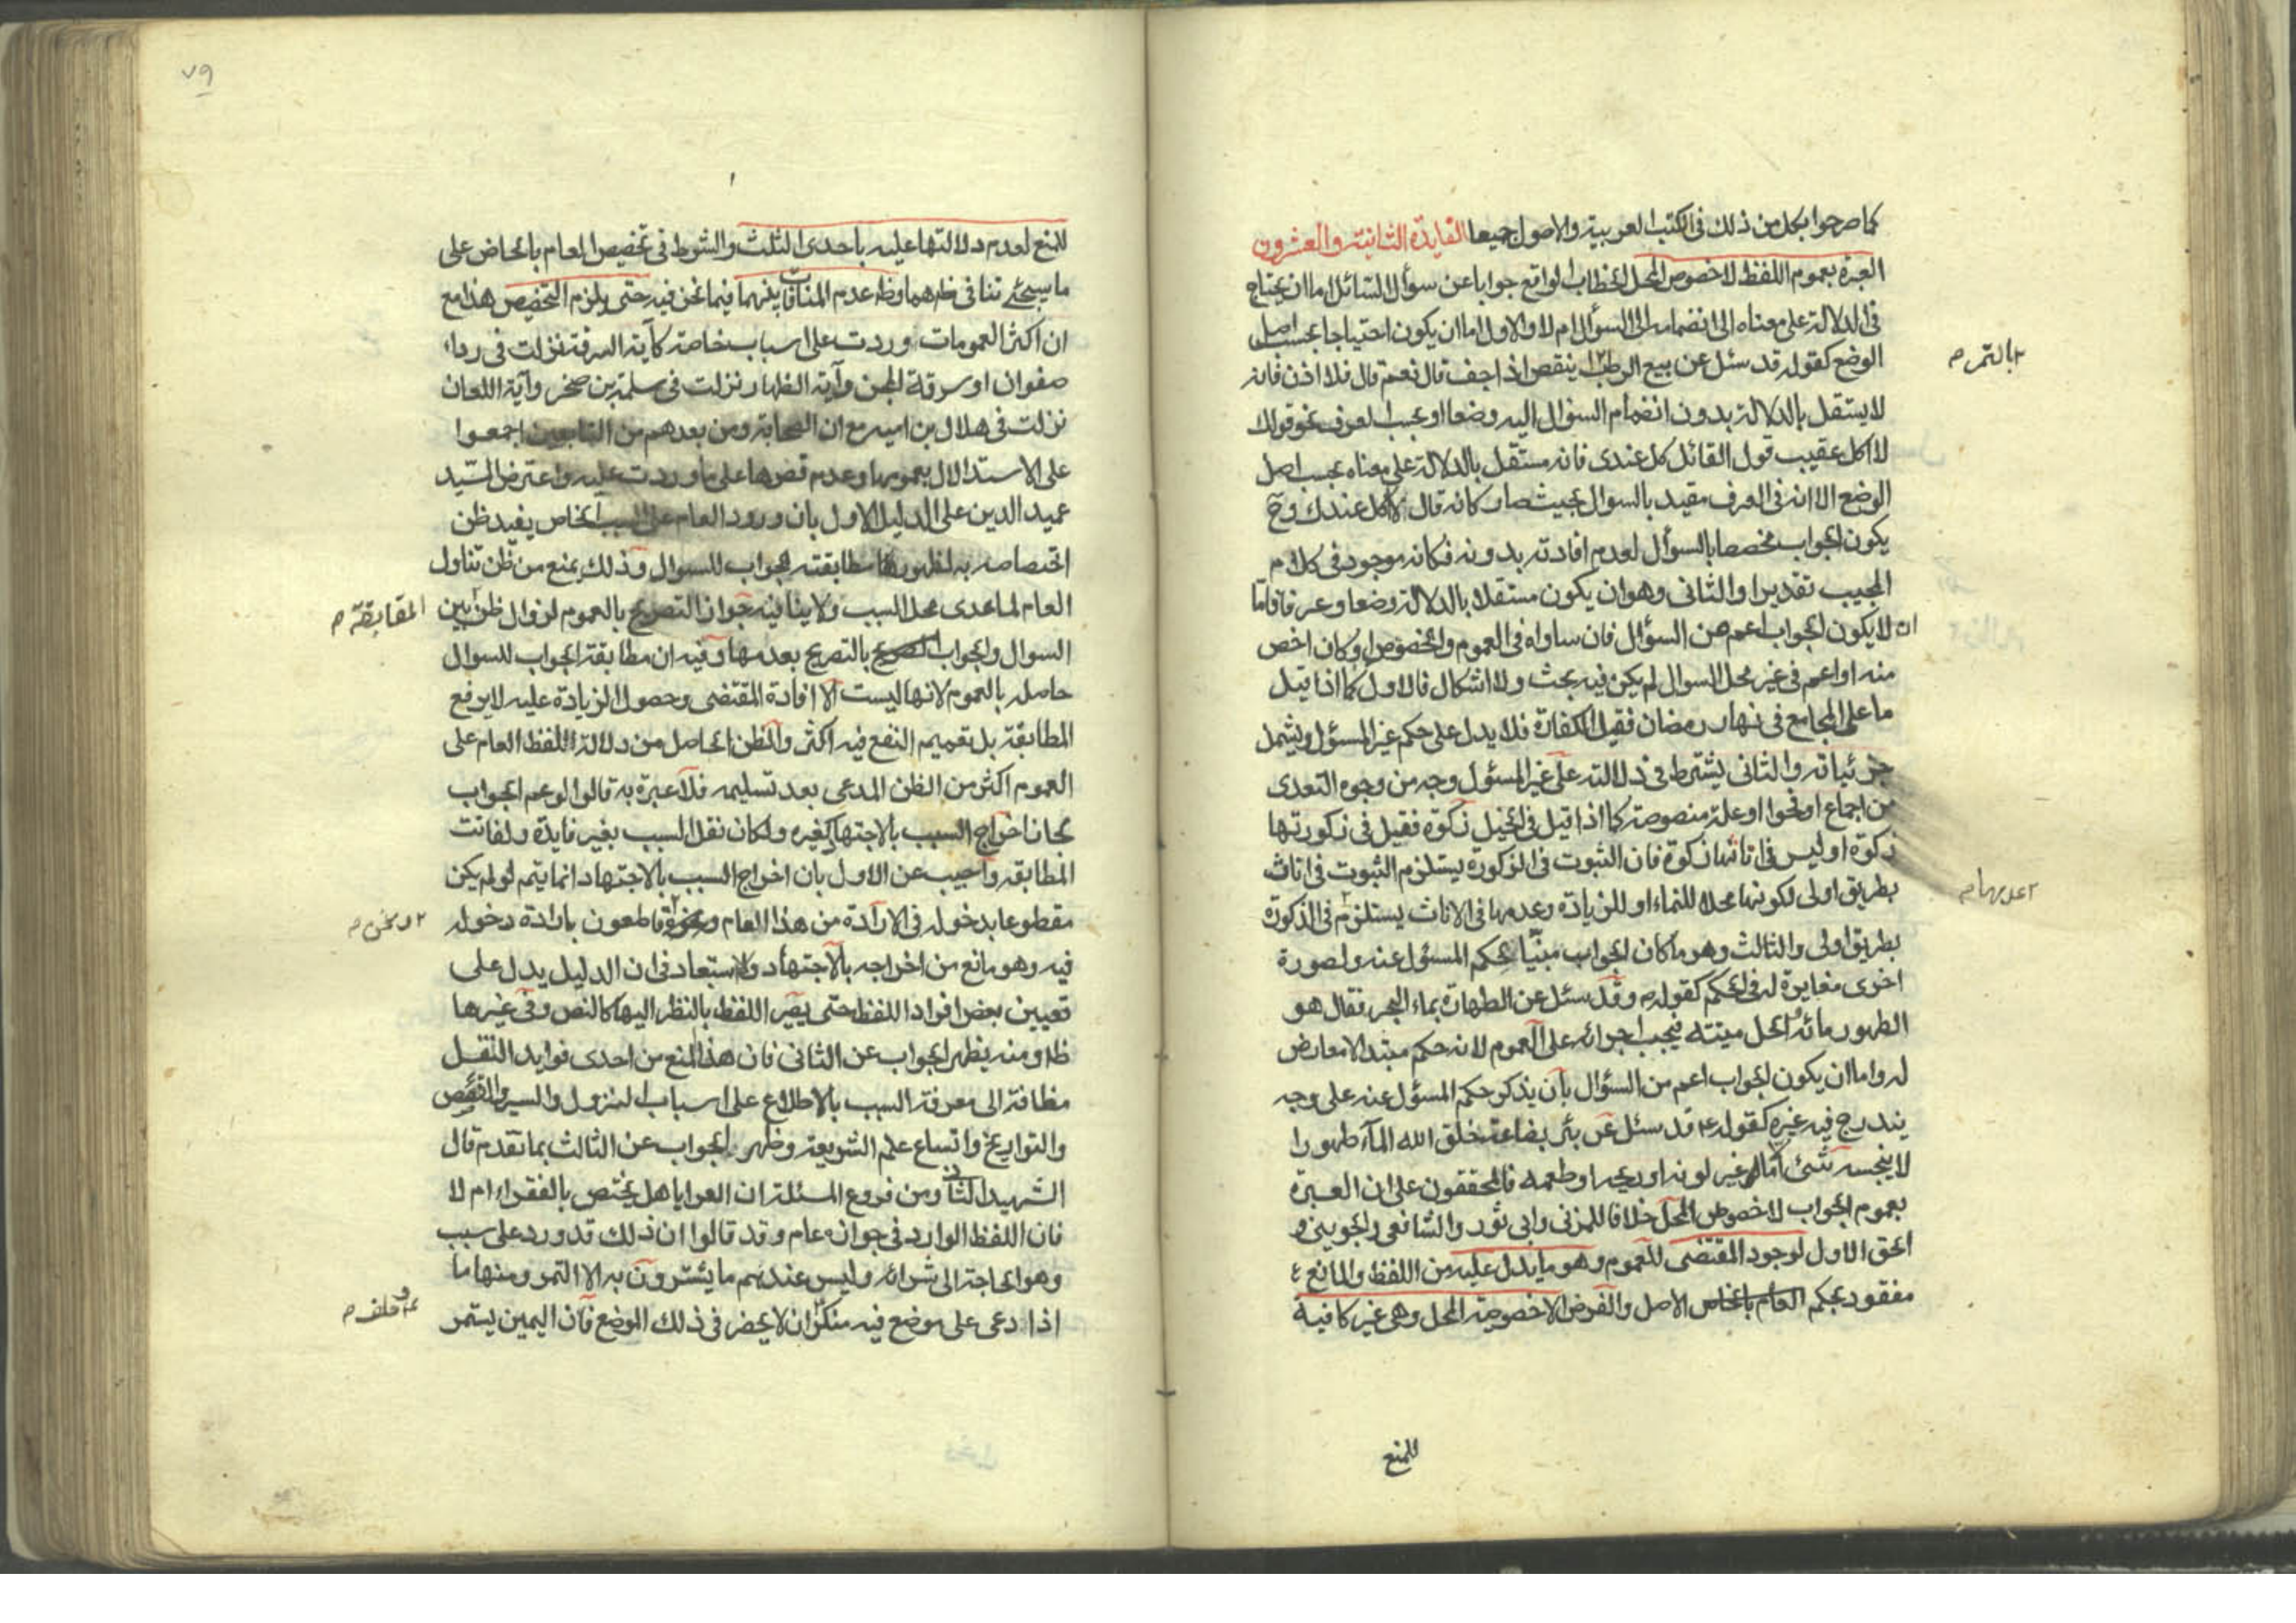 كما صرحوا بكل من ذلك في الكتب العربية والاصول جميعا الفايدة الثانية والعشرون
العبرة بعموم اللفظ لا خصوص المحل الخطاب الواقع جوابا عن سؤال السائل اما ان يحتاج
في الدلالة على معناه الى انضمامه الى السؤال ام لا والاول اما ان يكون احتياجا بحسب اصل
الوضع كقوله وقد سئل عن بيع الرطب اينقص اذا جف قال نعم قال فلا اذن فانه
بالتمر م
لا يستقل بالدلالة بدون انضمام السؤال اليه وضعا او بحسب العرف نحو قولك
لا اكل عقيب قول القائل كل عندى فانه مستقل بالدلالة على معناه بحسب اصل
الوضع الا انه في العرف مقيد بالسوال بحيث صار كانه قال لا اكل عندك وح
يكون الجواب مخصصا بالسؤال لعدم افادته بدونه فكانه موجود في كلام
المجيب تقديرا والثانى وهو ان يكون مستقلا بالدلالة وضعا وعرفا فاما
ان لا يكون الجواب اعم من السؤال فان ساواه في العموم والخصوص او كان اخص
منه او اعم في غير محل السوال لم يكن فيه بحث ولا اشكال فالاول كما اذا قيل
ما على المجامع في نهار رمضان فقيل الكفارة فلا يدل على حكم غير المسئول ويشمل
جزئياته والثانى يشترط في دلالته على غير المسئول وجه من وجوه التعدى
من اجماع او فحوا او علة منصوصة كما اذا قيل في الخيل زكوة فقيل في ذكورتها
زكوة او ليس في اناثها زكوة فان الثبوت في الذكورة يستلزم الثبوت في اناث
بطريق اولى لكونها محلا للنماء او للزيادة وعدمها في الاناث يستلزم في الذكورة
عدمها م
بطريق اولى والثالث وهو ما كان الجواب مبنيا لحكم المسئول عنه ولصورة
اخرى مغايرة له في الحكم كقوله م وقد سئل عن الطهارة بماء البحر فقال هو
الطهور مائه الحل ميتته فيجب اجرائه على العموم لانه حكم مبتدا لا معارض
له واما ان يكون الجواب اعم من السؤال بان يذكر حكم المسئول عنه على وجه
يندرج فيه غيره كقوله ع قد سئل عن بئر بضاعة خلق الله الماء طهورا
لا ينجسه شئ الا ما غير لونه او ريحه او طعمه فالمحققون على ان العبرة
بعموم الجواب لا خصوص المحل خلافا للمزنى وابى ثور والشافعى والجوينى و
الحق الاول لوجود المقتضى للعموم وهو ما يدل عليه من اللفظ والمانع
مفقود بحكم الاصل والفرض الا خصوصية المحل وهى غير كافية
للمنع
٧٩
للمنع لعدم دلالتها عليه باحدى الثلث والشرط في تخصيص العام بالخاص على
ما سيجئ تنافى ظاهرهما وظ عدم المنافات بينهما فيما نحن فيه حتى يلزم التخصيص هذا مع
ان اكثر العمومات وردت على اسباب خاصة كآية السرقة نزلت في رداء
صفوان او سرقة المجن وآية الظهار نزلت في سلمة بن صخر وآية اللعان
نزلت في هلال بن امية مع ان الصحابة ومن بعدهم من التابعين اجمعوا
على الاستدلال بعمومها وعدم قصرها على ما وردت عليه واعترض السيد
عميد الدين على الدليل الاول بان ورود العام على السبب الخاص يفيد ظن
اختصاصه به لظهور مطابقته الجواب للسوال وذلك يمنع من ظن تناول
العام لما عدى محل السبب ولا ينافيه جواز التصريح بالعموم لزوال ظن بين
المقابقة م
السوال والجواب بالتصريح بعدمها وفيه ان مطابقة الجواب للسوال
حاصله بالعموم لانها ليست الا افادة المقتضى وحصول الزيادة عليه لا يرفع
المطابقة بل تعميم النفع فيه اكثر والظن الحاصل من دلالة اللفظ العام على
العموم اكثر من الظن المدعى بعد تسليمه فلا عبرة به قالوا لو عم الجواب
لجاز اخراج السبب بالاجتهاد كغيره ولكان نقل السبب بغير فايدة ولفاتت
المطابقه واجيب عن الاول بان اخراج السبب بالاجتهاد انما يتم لو لم يكن
مقطوعا بدخوله في الارادة من هذا العام قاطعون بارادة دخوله
ونحن م
فيه وهو مانع من اخراجه بالاجتهاد ولا استبعاد في ان الدليل يدل على
تعيين بعض افراد اللفظ حتى يصير اللفظ بالنظر اليها كالنص وفى غيرها
ظ ومنه يظهر الجواب عن الثانى فان هذا المنع من احدى فوايد النقل
مظافة الى معرفة السبب بالاطلاع على اسباب النزول والسير والقصص
والتواريخ واتساع علم الشريعة وظهر الجواب عن الثالث بما تقدم قال
الشهيد الثانى ومن فروع المسئلة ان العرايا هل يختص بالفقراء ام لا
فان اللفظ الوارد في جوازه عام وقد قالوا ان ذلك قد ورد على سبب
وهو الحاجة الى شرائه وليس عندهم ما يشترون به الا التمر ومنها ما
اذا دعى على موضع فيه منكر ان لا يحضر في ذلك الموضع فان اليمين يستمر
وحلف م